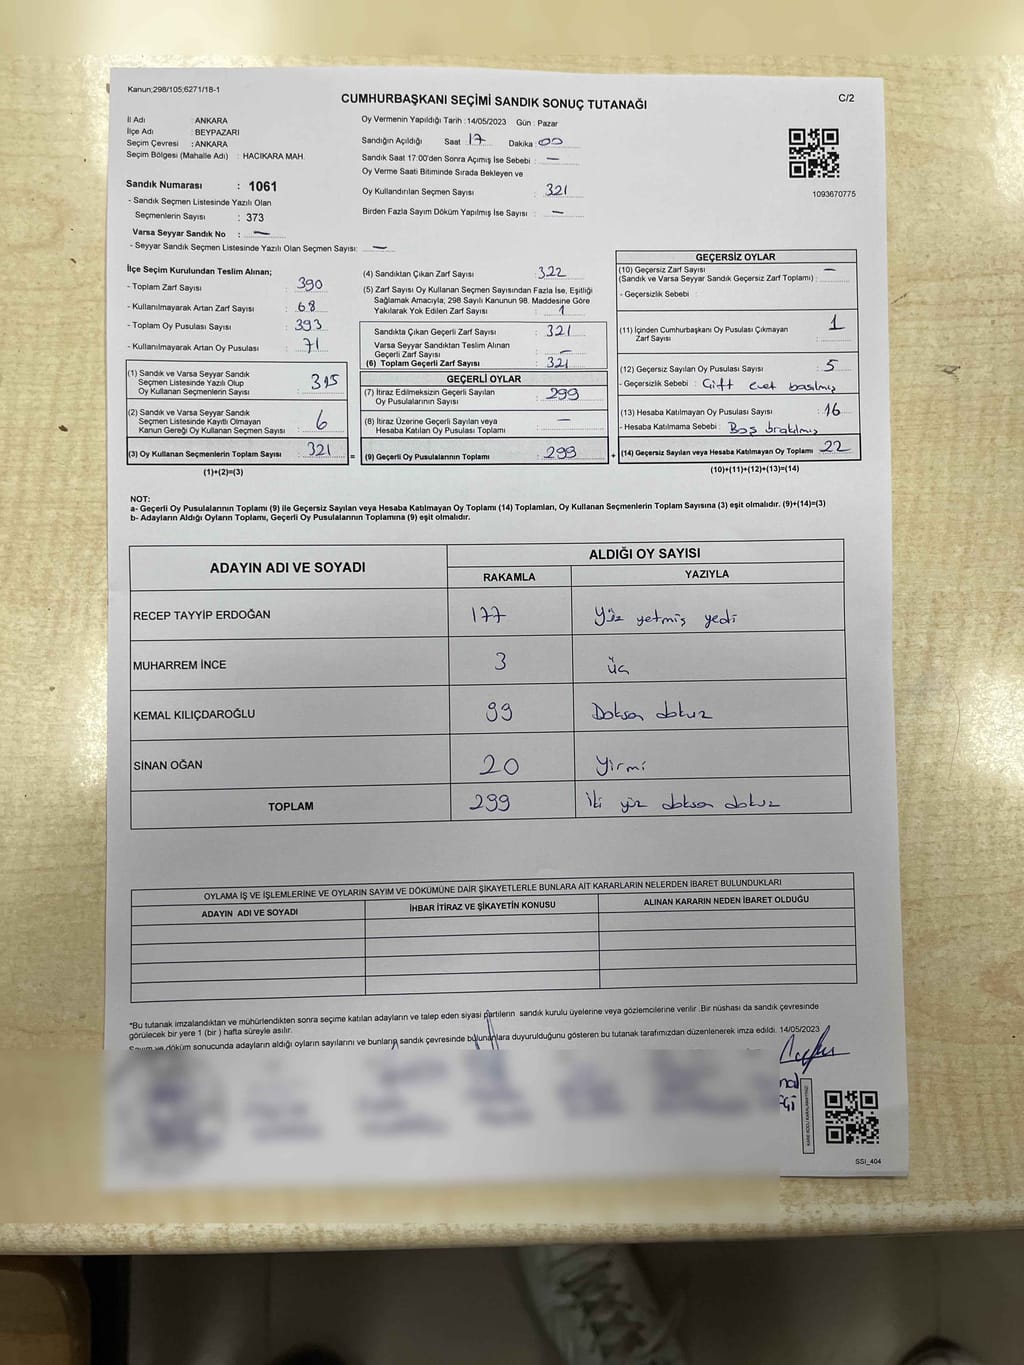 Kanun;298/105;6271/18-1
CUMHURBAŞKANI SEÇİMİ SANDIK SONUÇ TUTANAĞI
C/2
İl Adı : ANKARA
İlçe Adı : BEYPAZARI
Seçim Çevresi : ANKARA
Seçim Bölgesi (Mahalle Adı) : HACIKARA MAH.
Oy Vermenin Yapıldığı Tarih :14/05/2023 Gün : Pazar
Sandığın Açıldığı Saat 17 Dakika 00
Sandık Saat 17:00'den Sonra Açımış İse Sebebi : —
Oy Verme Saati Bitiminde Sırada Bekleyen ve
Oy Kullandırılan Seçmen Sayısı : 321
Birden Fazla Sayım Döküm Yapılmış İse Sayısı : —
1093670775
Sandık Numarası : 1061
- Sandık Seçmen Listesinde Yazılı Olan
Seçmenlerin Sayısı : 373
Varsa Seyyar Sandık No : —
- Seyyar Sandık Seçmen Listesinde Yazılı Olan Seçmen Sayısı: —
İlçe Seçim Kurulundan Teslim Alınan;
- Toplam Zarf Sayısı : 390
- Kullanılmayarak Artan Zarf Sayısı : 68
- Toplam Oy Pusulası Sayısı : 393
- Kullanılmayarak Artan Oy Pusulası : 71
(1) Sandık ve Varsa Seyyar Sandık
Seçmen Listesinde Yazılı Olup
Oy Kullanan Seçmenlerin Sayısı : 315
(2) Sandık ve Varsa Seyyar Sandık
Seçmen Listesinde Kayıtlı Olmayan
Kanun Gereği Oy Kullanan Seçmen Sayısı : 6
(3) Oy Kullanan Seçmenlerin Toplam Sayısı : 321
(1)+(2)=(3)
(4) Sandıktan Çıkan Zarf Sayısı : 322
(5) Zarf Sayısı Oy Kullanan Seçmen Sayısından Fazla İse, Eşitliği
Sağlamak Amacıyla; 298 Sayılı Kanunun 98. Maddesine Göre
Yakılarak Yok Edilen Zarf Sayısı : 1
Sandıkta Çıkan Geçerli Zarf Sayısı : 321
Varsa Seyyar Sandıktan Teslim Alınan
Geçerli Zarf Sayısı : —
(6) Toplam Geçerli Zarf Sayısı : 321
=
GEÇERLİ OYLAR
(7) İtiraz Edilmeksizin Geçerli Sayılan
Oy Pusulalarının Sayısı : 299
(8) İtiraz Üzerine Geçerli Sayılan veya
Hesaba Katılan Oy Pusulası Toplamı : —
(9) Geçerli Oy Pusulalarının Toplamı : 299
+
GEÇERSİZ OYLAR
(10) Geçersiz Zarf Sayısı
(Sandık ve Varsa Seyyar Sandık Geçersiz Zarf Toplamı) : —
- Geçersizlik Sebebi :
(11) İçinden Cumhurbaşkanı Oy Pusulası Çıkmayan
Zarf Sayısı : 1
(12) Geçersiz Sayılan Oy Pusulası Sayısı : 5
- Geçersizlik Sebebi : Çift evet basılmış
(13) Hesaba Katılmayan Oy Pusulası Sayısı : 16
- Hesaba Katılmama Sebebi : Boş bırakılmış
(14) Geçersiz Sayılan veya Hesaba Katılmayan Oy Toplamı : 22
(10)+(11)+(12)+(13)=(14)
NOT:
a- Geçerli Oy Pusulalarının Toplamı (9) ile Geçersiz Sayılan veya Hesaba Katılmayan Oy Toplamı (14) Toplamları, Oy Kullanan Seçmenlerin Toplam Sayısına (3) eşit olmalıdır. (9)+(14)=(3)
b- Adayların Aldığı Oyların Toplamı, Geçerli Oy Pusulalarının Toplamına (9) eşit olmalıdır.
ADAYIN ADI VE SOYADI ALDIĞI OY SAYISI
RAKAMLA YAZIYLA
RECEP TAYYİP ERDOĞAN 177 Yüz yetmiş yedi
MUHARREM İNCE 3 üç
KEMAL KILIÇDAROĞLU 99 Doksan dokuz
SİNAN OĞAN 20 Yirmi
TOPLAM 299 İki yüz doksan dokuz
OYLAMA İŞ VE İŞLEMLERİNE VE OYLARIN SAYIM VE DÖKÜMÜNE DAİR ŞİKAYETLERLE BUNLARA AİT KARARLARIN NELERDEN İBARET BULUNDUKLARI
ADAYIN ADI VE SOYADI İHBAR İTİRAZ VE ŞİKAYETİN KONUSU ALINAN KARARIN NEDEN İBARET OLDUĞU
*Bu tutanak imzalandıktan ve mühürlendikten sonra seçime katılan adayların ve talep eden siyasi partilerin sandık kurulu üyelerine veya gözlemcilerine verilir .Bir nüshası da sandık çevresinde
görülecek bir yere 1 (bir ) hafta süreyle asılır.
Sayım ve döküm sonucunda adayların aldığı oyların sayılarını ve bunların sandık çevresinde bulunanlara duyurulduğunu gösteren bu tutanak tarafımızdan düzenlenerek imza edildi. 14/05/2023
SSI_404